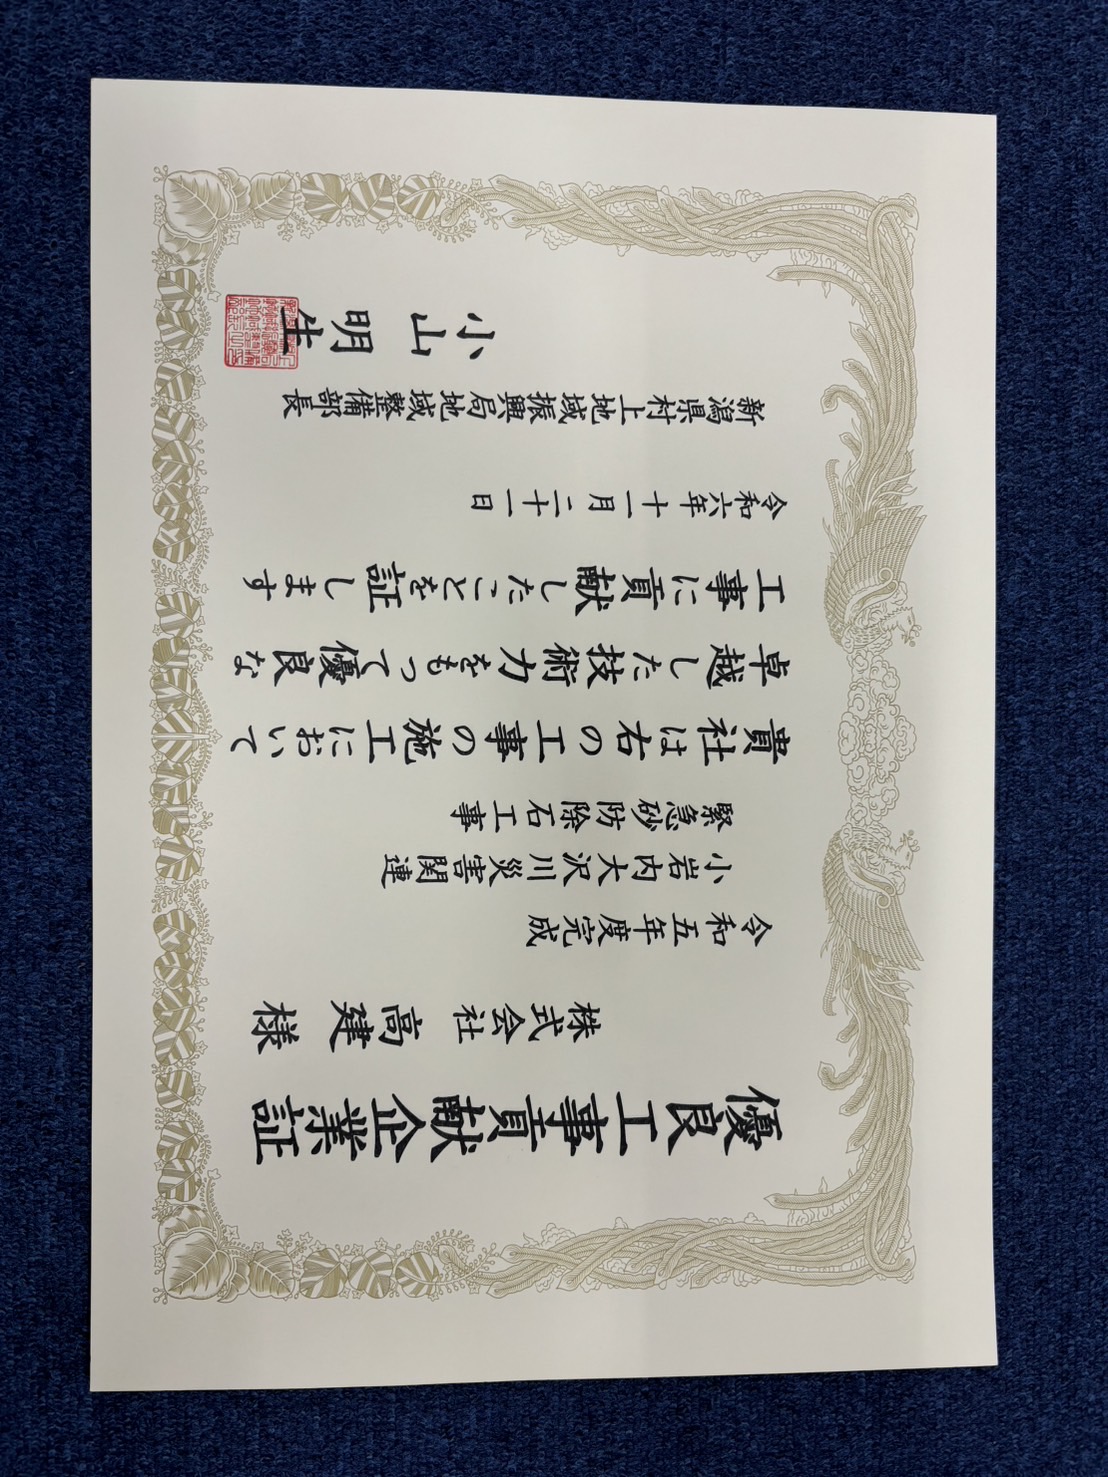 優良工事貢献企業証
株式会社 高建 様
令和五年度完成
小岩内大沢川災害関連
緊急砂防除石工事
貴社は右の工事の施工において
卓越した技術力をもって優良な
工事に貢献したことを証します
令和六年十一月二十一日
新潟県村上地域振興局地域整備部長
小山明生